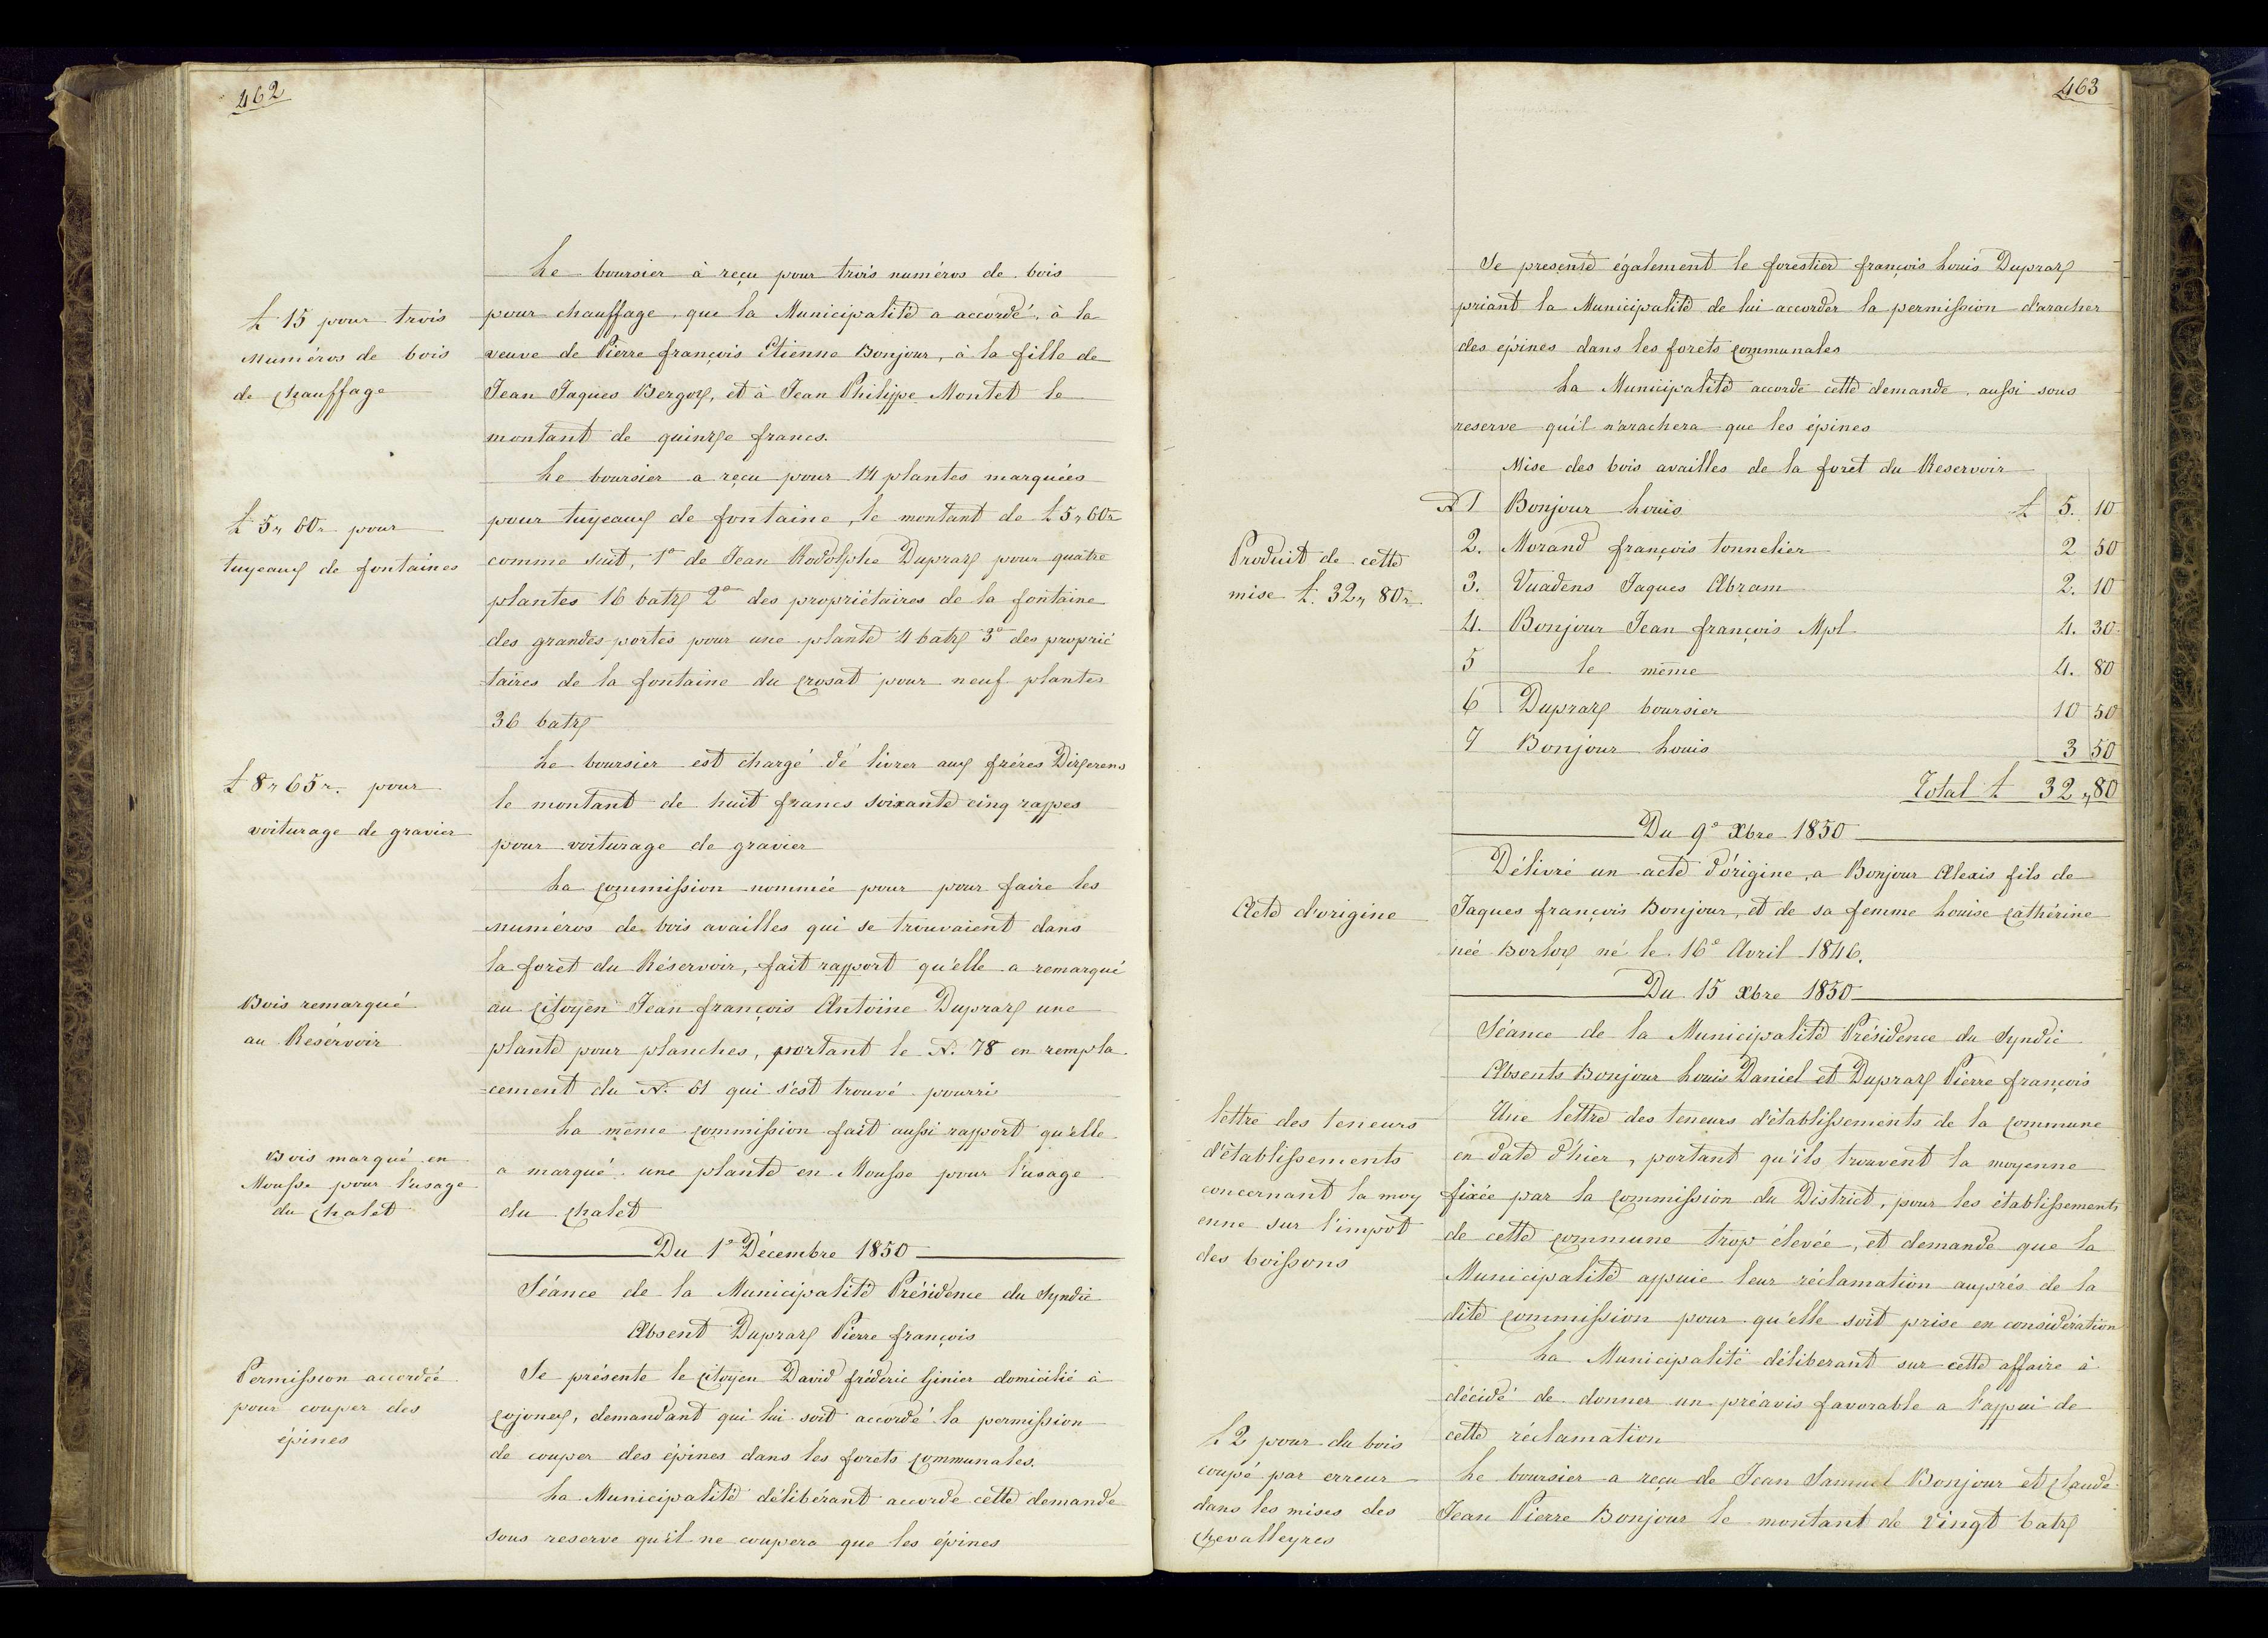 462
Le boursier à reçu pour trois numéros de bois
L 15 pour trois
numéros de bois
de chauffage
pour chauffage, que la Municipalité a accordé, à la
veuve de Pierre françois Etienne Bonjour, à la fille de
Jean Jaques Bergoz, et à Jean Philippe Montet le
montant de quinze francs.
Le boursier a reçu pour 14 plantes marquées
L 5„ 60r pour
tuyeaux de fontaines
pour tuyeaux de fontaine, le montant de L 5„ 60r
comme suit, 1º de Jean Rodolphe Dupraz pour quatre
plantes 16 batz 2º des propriétaires de la fontaine
des grandes portes pour une plante 4 batz 3º des proprié
taires de la fontaine du crosat pour neuf plantes
36 batz
L 8„ 65r. pour
voiturage de gravier
Le boursier est chargé dé livrer aux fréres
le montant de huit francs soixante cinq rappes
pour voiturage de gravier
La commission nommée pour pour faire les
numéros de bois availles qui se trouvaient dans
la foret du Réservoir, fait rapport qu'elle a remarqué
Bois remarqué
au Resérvoir
au Citoyen Jean françois Antoine Dupraz une
plante pour planches, portant le N. 78 en rempla
cement du N. 61 qui s'est trouvé pourri
La même commission fait aussi rapport qu'elle
Bois marqué en
Mousse pour l'usage
du chalet
a marqué une plante en Mousse pour l'usage
du chalet
Du 1º Décembre 1850
Séance de la Municipalité Présidence du Syndic
Absent Dupraz Pierre françois
Permission accordée
pour couper des
épines
Se présente le citoyen David fréderic Ginier domicilié à
Cojonex, demandant qui lui soit accordé la permission
de couper des épines dans les forets communales.
La Municipalité délibérant accorde cette demande
sous reserve qu'il ne coupera que les épines
463
Se presente également le forestier françois Louis Dupraz
priant la Municipalité de lui accorder la permission d'aracher
des epines dans les forets communales
La Municipalité accorde cette demande aussi sous
reserve qu'il n'arachera que les épines
Mise des bois availles de la foret du Reservoir
Produit de cette
mise L. 32„ 80r
N 1 Bonjour Louis L 5. 10
2. Morand françois tonnelier 2 50
3. Vuadens Jaques Abram 2. 10
4. Bonjour Jean françois Mpl 4. 30
5 le même 4. 80
6 Dupraz boursier 10 50
7 Bonjour Louis 3 50
Total L 32„80
Du 9º Xbre 1850
Acte d'origine
Délivré un acte d'origine, a Bonjour Alexis fils de
Jaques françois Bonjour, et de sa femme Louise Cathérine
née Borloz né le 16º Avril 1846.
Du 15 Xbre 1850
Séance de la Municipalité Présidence du Syndic
Absents Bonjour Louis Daniel et Dupraz Pierre françois
lettre des teneurs
d'établissements
concernant la moy
enne sur l'impot
des boissons
Une lettre des teneurs d'établissements de la commune
en date d'hier, portant qu'ils trouvent la moyenne
fixée par la commission du District, pour les établissements
de cette commune trop élevée, et demande que la
Municipalité appuie leur réclamation auprés de la
dite commission pour qu'elle soit prise en considération
La Municipalité déliberant sur cette affaire à
décidé de donner un préavis favorable a l'appui de
cette réclamation
L 2 pour du bois
coupé par erreur
dans les mises des
Chevalleyres
Le boursier a reçu de Jean Samuel Bonjour et Claude
Jean Pierre Bonjour le montant de vingt batz